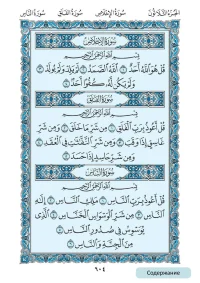 الجزء الثلاثون سورة الإخلاص سورة الفلق سورة الناس
سورة الإخلاص
بِسْمِ اللَّهِ الرَّحْمَٰنِ الرَّحِيمِ
قُلْ هُوَ اللَّهُ أَحَدٌ ۝١ اللَّهُ الصَّمَدُ ۝٢ لَمْ يَلِدْ وَلَمْ يُولَدْ ۝٣
وَلَمْ يَكُن لَّهُ كُفُوًا أَحَدٌ ۝٤
سورة الفلق
بِسْمِ اللَّهِ الرَّحْمَٰنِ الرَّحِيمِ
قُلْ أَعُوذُ بِرَبِّ الْفَلَقِ ۝١ مِن شَرِّ مَا خَلَقَ ۝٢ وَمِن شَرِّ
غَاسِقٍ إِذَا وَقَبَ ۝٣ وَمِن شَرِّ النَّفَّاثَاتِ فِي الْعُقَدِ ۝٤
وَمِن شَرِّ حَاسِدٍ إِذَا حَسَدَ ۝٥
سورة الناس
بِسْمِ اللَّهِ الرَّحْمَٰنِ الرَّحِيمِ
قُلْ أَعُوذُ بِرَبِّ النَّاسِ ۝١ مَلِكِ النَّاسِ ۝٢ إِلَٰهِ
النَّاسِ ۝٣ مِن شَرِّ الْوَسْوَاسِ الْخَنَّاسِ ۝٤ الَّذِي
يُوَسْوِسُ فِي صُدُورِ النَّاسِ ۝٥
مِنَ الْجِنَّةِ وَالنَّاسِ ۝٦
٦٠٤
Содержание